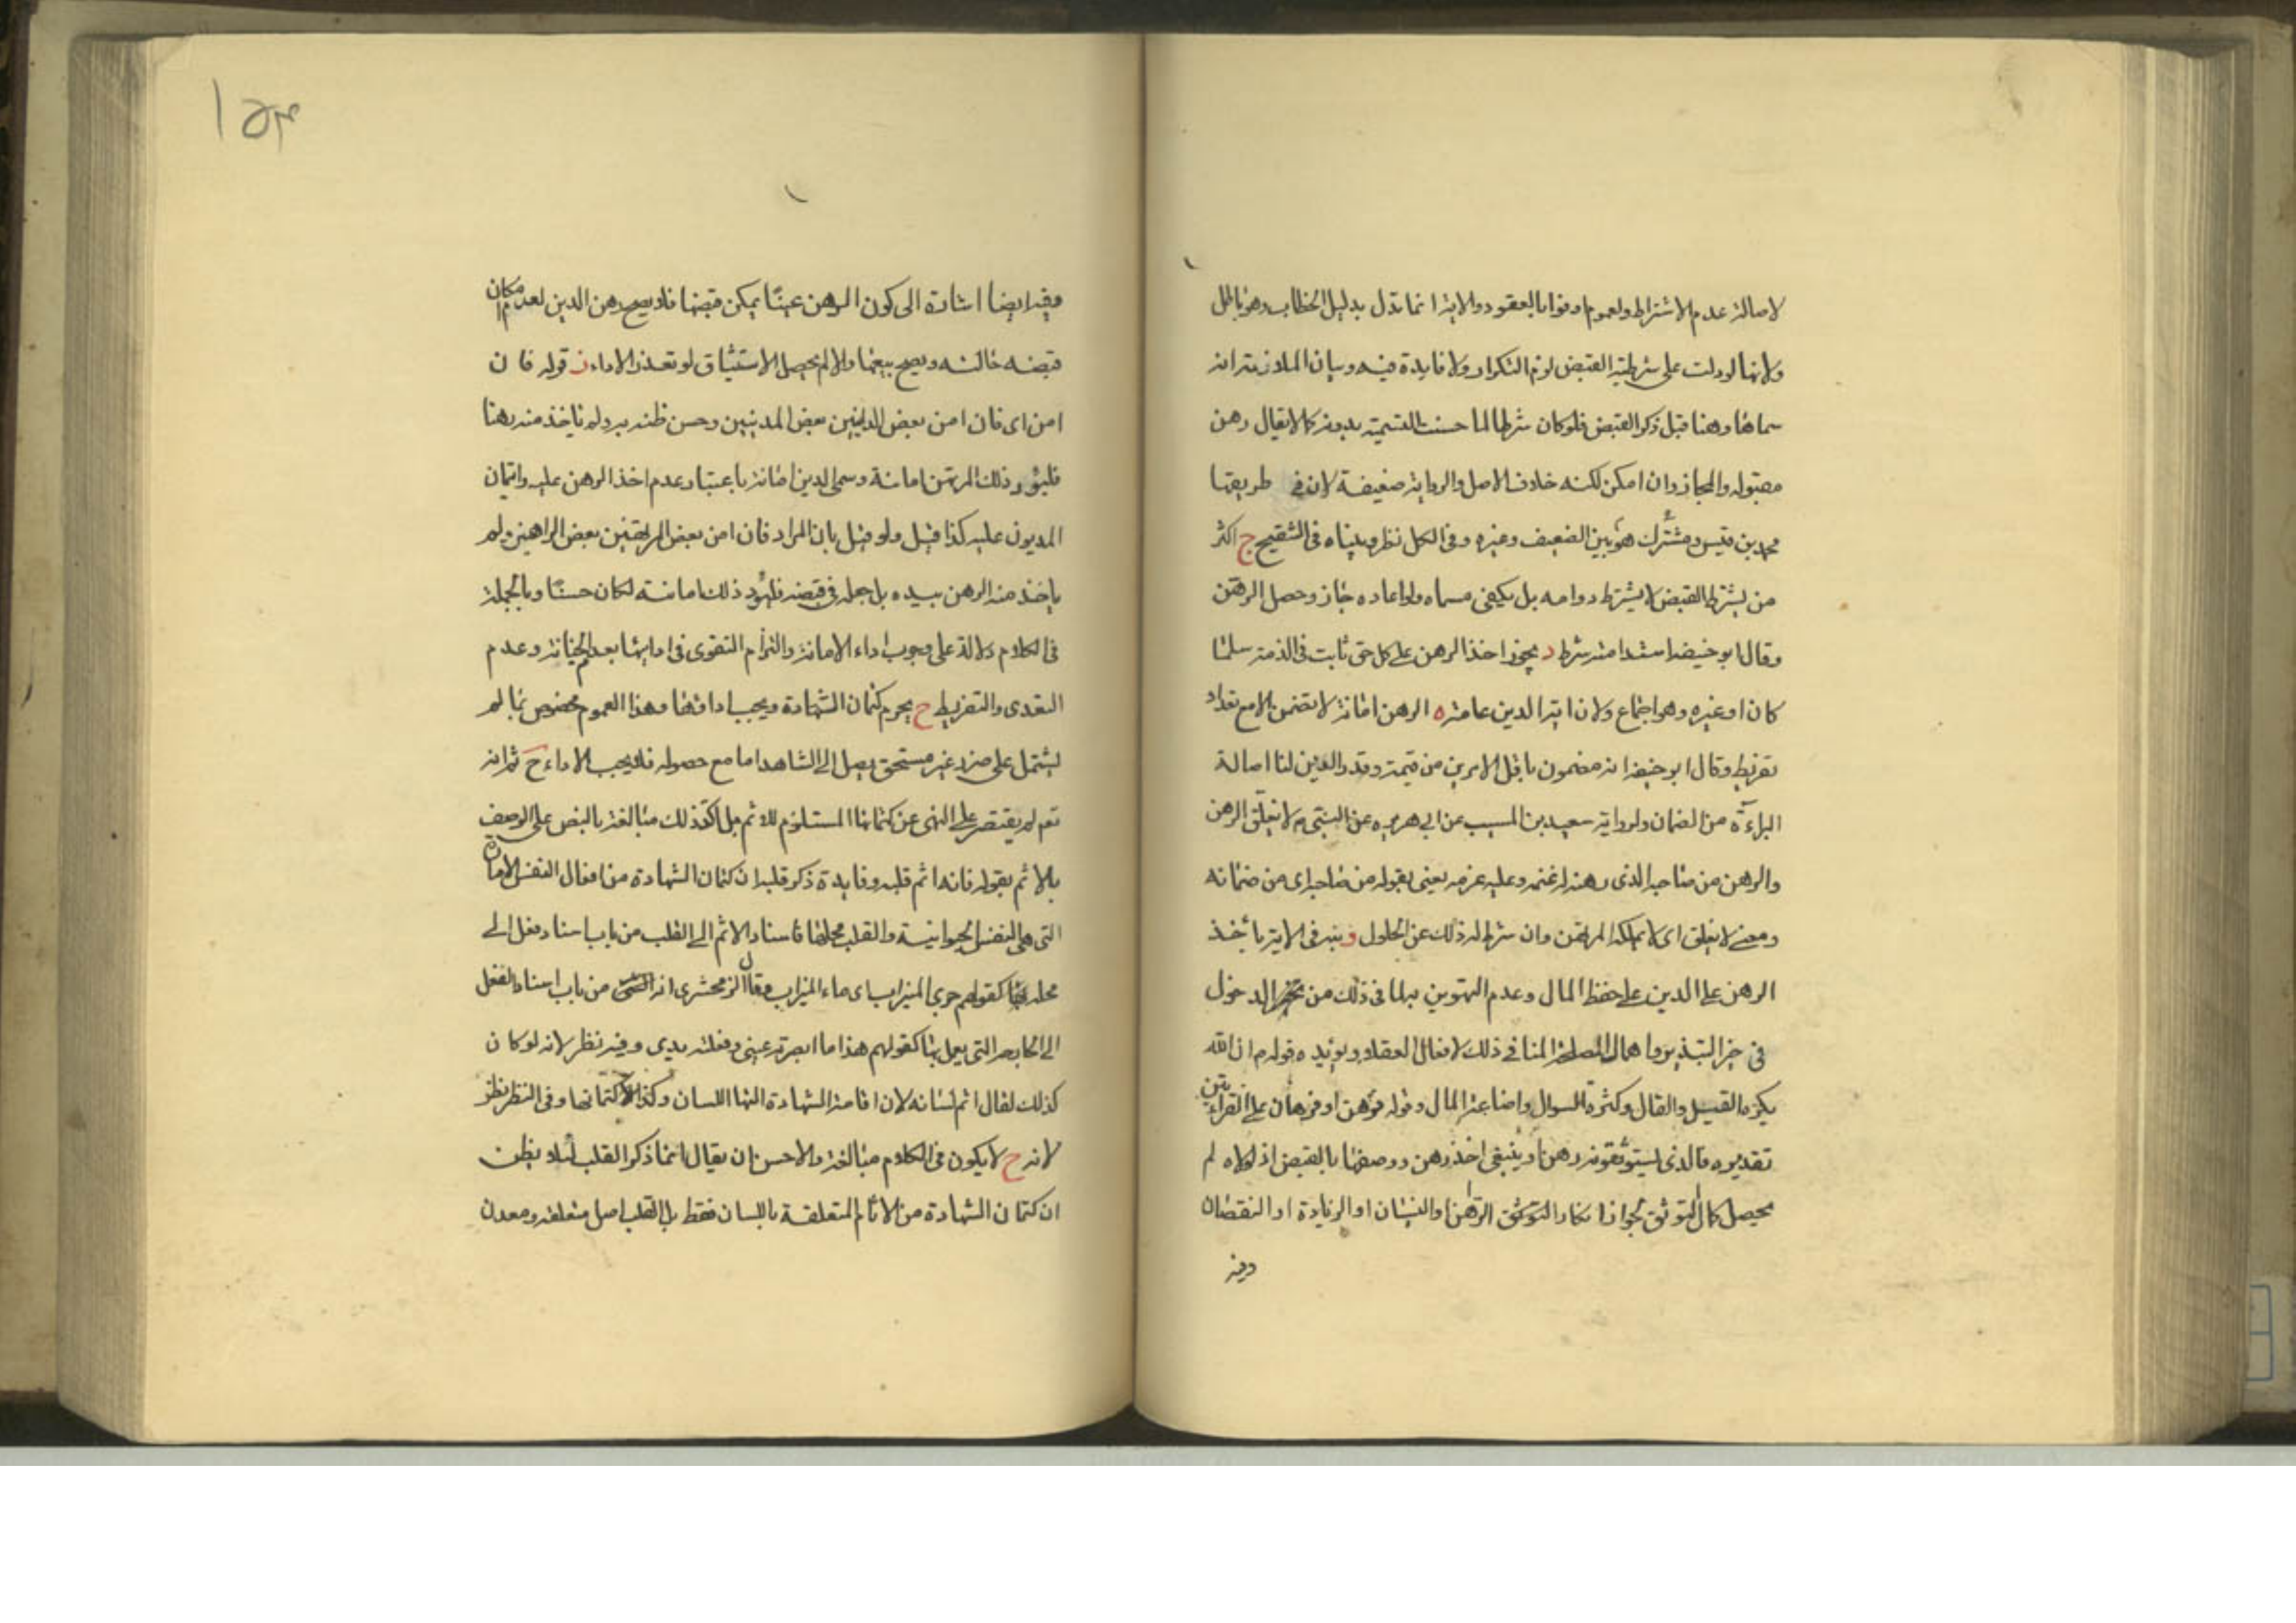 لاصالة عدم الاشتراط ولعموم اوفوا بالعقود والاية انما تدل بدليل الخطاب وهو باطل
ولانها لو دلت على شرطية القبض لزم التكرار ولا فايدة فيه وبيان الملازمة انه
سماها رهنا قبل ذكر القبض فلو كان شرطا لما حسنت التسمية بدونه كما لا يقال رهن
مقبوله والمجاز وان امكن لكنه خلاف الاصل والرواية ضعيفة لان في طريقها
محمد بن قيس ومشترك هو بين الضعيف وغيره وفي الكل نظر وبيناه في التنقيح ج اكثر
من يشترط القبض لا يشترط دوامه بل يكفي مسماه ولو اعاده جاز وحصل الرهن
وقال ابو حنيفة استدامته شرط د يجوز اخذ الرهن على كل حق ثابت في الذمة سلما
كان او غيره وهو اجماع ولان اية الدين عامة ه الرهن امانة لا تضمن الا مع تعد او
تفريط وقال ابو حنيفة انه مضمون باقل الامرين من قيمته وقدر الدين لنا اصالة
البراءة من الضمان ولرواية سعيد بن المسيب عن ابي هريره عن النبي م لا يغلق الرهن
والرهن من صاحبه الذي رهنه له غنمه وعليه غرمه يعني بقوله من صاحبه اى من ضمانه
ومعنى لا يغلق اى لا يملكه المرتهن وان شرط له ذلك عن الحلول و نبه في الاية باخذ
الرهن على الدين على حفظ المال وعدم التهوين به لما في ذلك من الدخول
في حيز التبذير واهمال المصلحة المنافي ذلك لافعال العقلاء ويؤيده قوله م ان الله
يكره القيل والقال وكثرة السوال واضاعة المال وقوله فرهن او فرهان على القراءتين
تقديره فالذي يستوثقونه رهن او ينبغي اخذ رهن ووصفها بالقبض اذ لولاه لم
يحصل كمال التوثق لجواز انكار الراهن او النسيان او الزيادة او النقصان
وفيه
وفيه ايضا اشارة الى كون الرهن عينا يمكن قبضها فلا يصح رهن الدين لعدم امكان
قبضه حالته ويصح بيعها والا لم يحصل الاستيثاق لو تعذر الاداء ز قوله فان
امن اى فان امن بعض الداينين بعض المدينين وحسن ظنه به ولم ياخذ منه رهنا
فليؤد ذلك المرتهن امانته وسمى الدين امانة باعتبار عدم اخذ الرهن عليه وايتمان
المديون عليه كذا قيل ولو قيل بان المراد فان امن بعض المرتهنين بعض الراهنين ولم
ياخذ منه الرهن بيده بل جعله في قبضه فليؤد ذلك امانته لكان حسنا وبالجملة
في الكلام دلالة على وجوب اداء الامانة والتزام التقوى في ادائها بعدم الخيانة وعدم
التعدى والتفريط ح يحرم كتمان الشهادة ويجب اداؤها وهذا العموم مخصوص بما لم
يشتمل على ضرر غير مستحق يصل الى الشاهد اما مع حصوله فلا يجب الاداء ح ثم انه
تعم لم يقتصر على النهى عن كتمانها المستلزم للاثم بل اكد ذلك مبالغة بالنص على الوصف
بالاثم بقوله فانه اثم قلبه وفايدة ذكر قلبه ان كتمان الشهادة من افعال النفس الامارة
التي هي النفس الحيوانية والقلب محلها فاسناد الاثم الى القلب من باب اسناد فعل الى
محله كقولهم جرى الميزاب اى ماء الميزاب وقال الزمخشرى انه من باب اسناد الفعل
الى الجارحة التي يعمل بها كقولهم هذا ما ابصرته عيني وفعلته يدى وفيه نظر لانه لو كان
كذلك لقال اثم لسانه لان اقامة الشهادة التها اللسان وكذا كتمانها وفي النظر نظر
لانه ح لا يكون في الكلام مبالغة والاحسن ان يقال انما ذكر القلب لئلا يظن
ان كتمان الشهادة من الاثام المتعلقة باللسان فقط بل القلب اصل متعلقه ومعدن